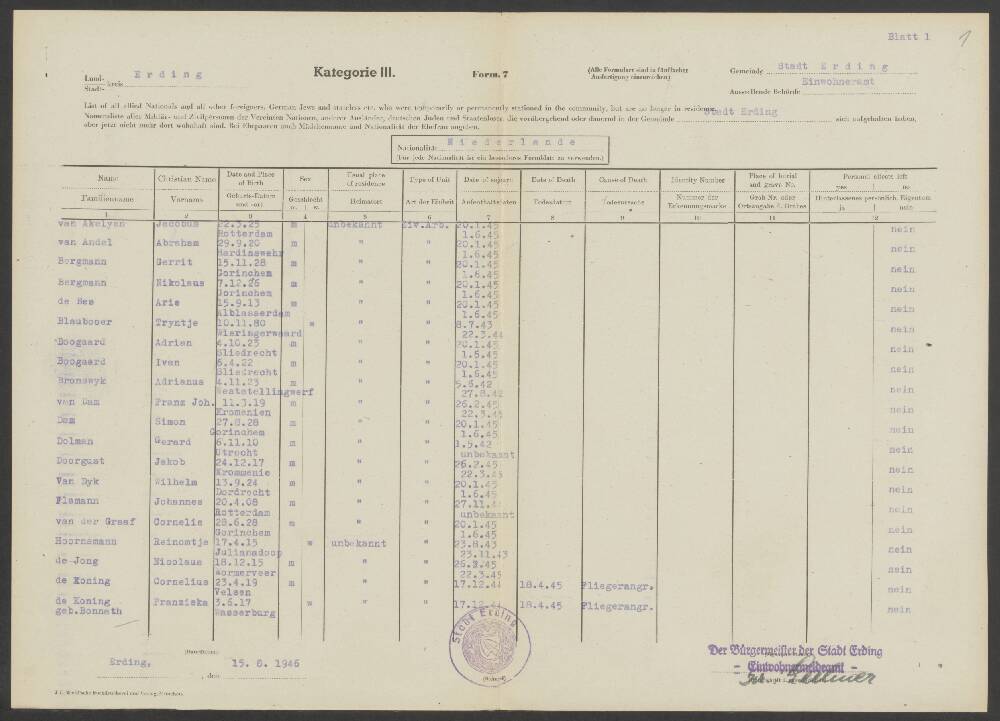 Blatt 1
1
Land-
Stadt- kreis Erding
Kategorie III.
Form. 7
(Alle Formulare sind in fünffacher
Ausfertigung einzureichen)
Gemeinde Stadt Erding
Einwohneramt
Ausstellende Behörde
List of all allied Nationals and all other foreigners, German Jews and stateless etc. who were temporarily or permanently stationed in the community, but are no longer in residence.
Namensliste aller Militär- und Zivilpersonen der Vereinten Nationen, anderer Ausländer, deutschen Juden und Staatenlose, die vorübergehend oder dauernd in der Gemeinde Stadt Erding sich aufgehalten haben,
aber jetzt nicht mehr dort wohnhaft sind. Bei Ehepaaren auch Mädchenname und Nationalität der Ehefrau angeben.
Nationalität Niederlande
(Für jede Nationalität ist ein besonderes Formblatt zu verwenden.)
Name Christian Name Date and Place of Birth Sex Usual place of residence Type of Unit Date of sojourn Date of Death Cause of Death Identity Number Place of burial and grave No. Personal effects left yes no
Familienname Vorname Geburts-Datum und -ort Geschlecht m. w. Heimatort Art der Einheit Aufenthaltszeiten Todesdatum Todesursache Nummer der Erkennungsmarke Grab Nr. oder Ortsangabe d. Grabes Hinterlassenes persönlich. Eigentum ja nein
1 2 3 4 5 6 7 8 9 10 11 12
van Akelyen Jacobus 22.3.25 m unbekannt Ziv.Arb. 20.1.45 nein
Rotterdam 1.6.45
van Andel Abraham 29.9.20 m " " 20.1.45 nein
Hardinswehr 1.6.45
Bergmann Gerrit 15.11.28 m " " 20.1.45 nein
Gorinchem 1.6.45
Bergmann Nikolaus 7.12.26 m " " 20.1.45 nein
Gorinchem 1.6.45
de Bee Arie 15.9.13 m " " 20.1.45 nein
Alblasserdam 1.6.45
Blaubooer Tryntje 10.11.80 w " " 8.7.43 nein
Wieringerwaard 22.3.44
Boogaard Adrian 4.10.23 m " " 20.1.45 nein
Sliedrecht 1.6.45
Boogaard Ivan 6.4.22 m " " 20.1.45 nein
Sliedrecht 1.6.45
Bronswyk Adrianus 4.11.23 m " " 5.6.42 nein
Weststellingwerf 27.8.42
van Dam Franz Joh. 11.3.19 m " " 26.2.45 nein
Kromenien 22.3.45
Dam Simon 27.8.28 m " " 20.1.45 nein
Gorinchem 1.6.45
Dolman Gerard 6.11.10 m " " 1.5.42 nein
Utrecht unbekannt
Doorgust Jakob 24.12.17 m " " 26.2.45 nein
Krommenie 22.3.45
Van Dyk Wilhelm 13.9.24 m " " 20.1.45 nein
Dordrecht 1.6.45
Flamann Johannes 20.4.08 m " " 27.11. nein
Rotterdam unbekannt
van der Graaf Cornelis 28.6.28 m " " 20.1.45 nein
Gorinchem 1.6.45
Hoornsmann Reinomtje 17.4.15 w unbekannt " 23.8.43 nein
Julianadoop 23.11.43
de Jong Nicolaus 18.12.15 m " " 26.2.45 nein
Wormerveer 22.3.45
de Koning Cornelius 23.4.19 m " " 17.12.44 18.4.45 Fliegerangr. nein
Velsen
de Koning Franziska 3.6.17 w " " 17.12.44 18.4.45 Fliegerangr. nein
geb.Bonnath Wasserburg
Stadt Erding
(Dienstsiegel)
Erding, , den 15. 8. 1946
Der Bürgermeister der Stadt Erding
- Einwohnermeldeamt -